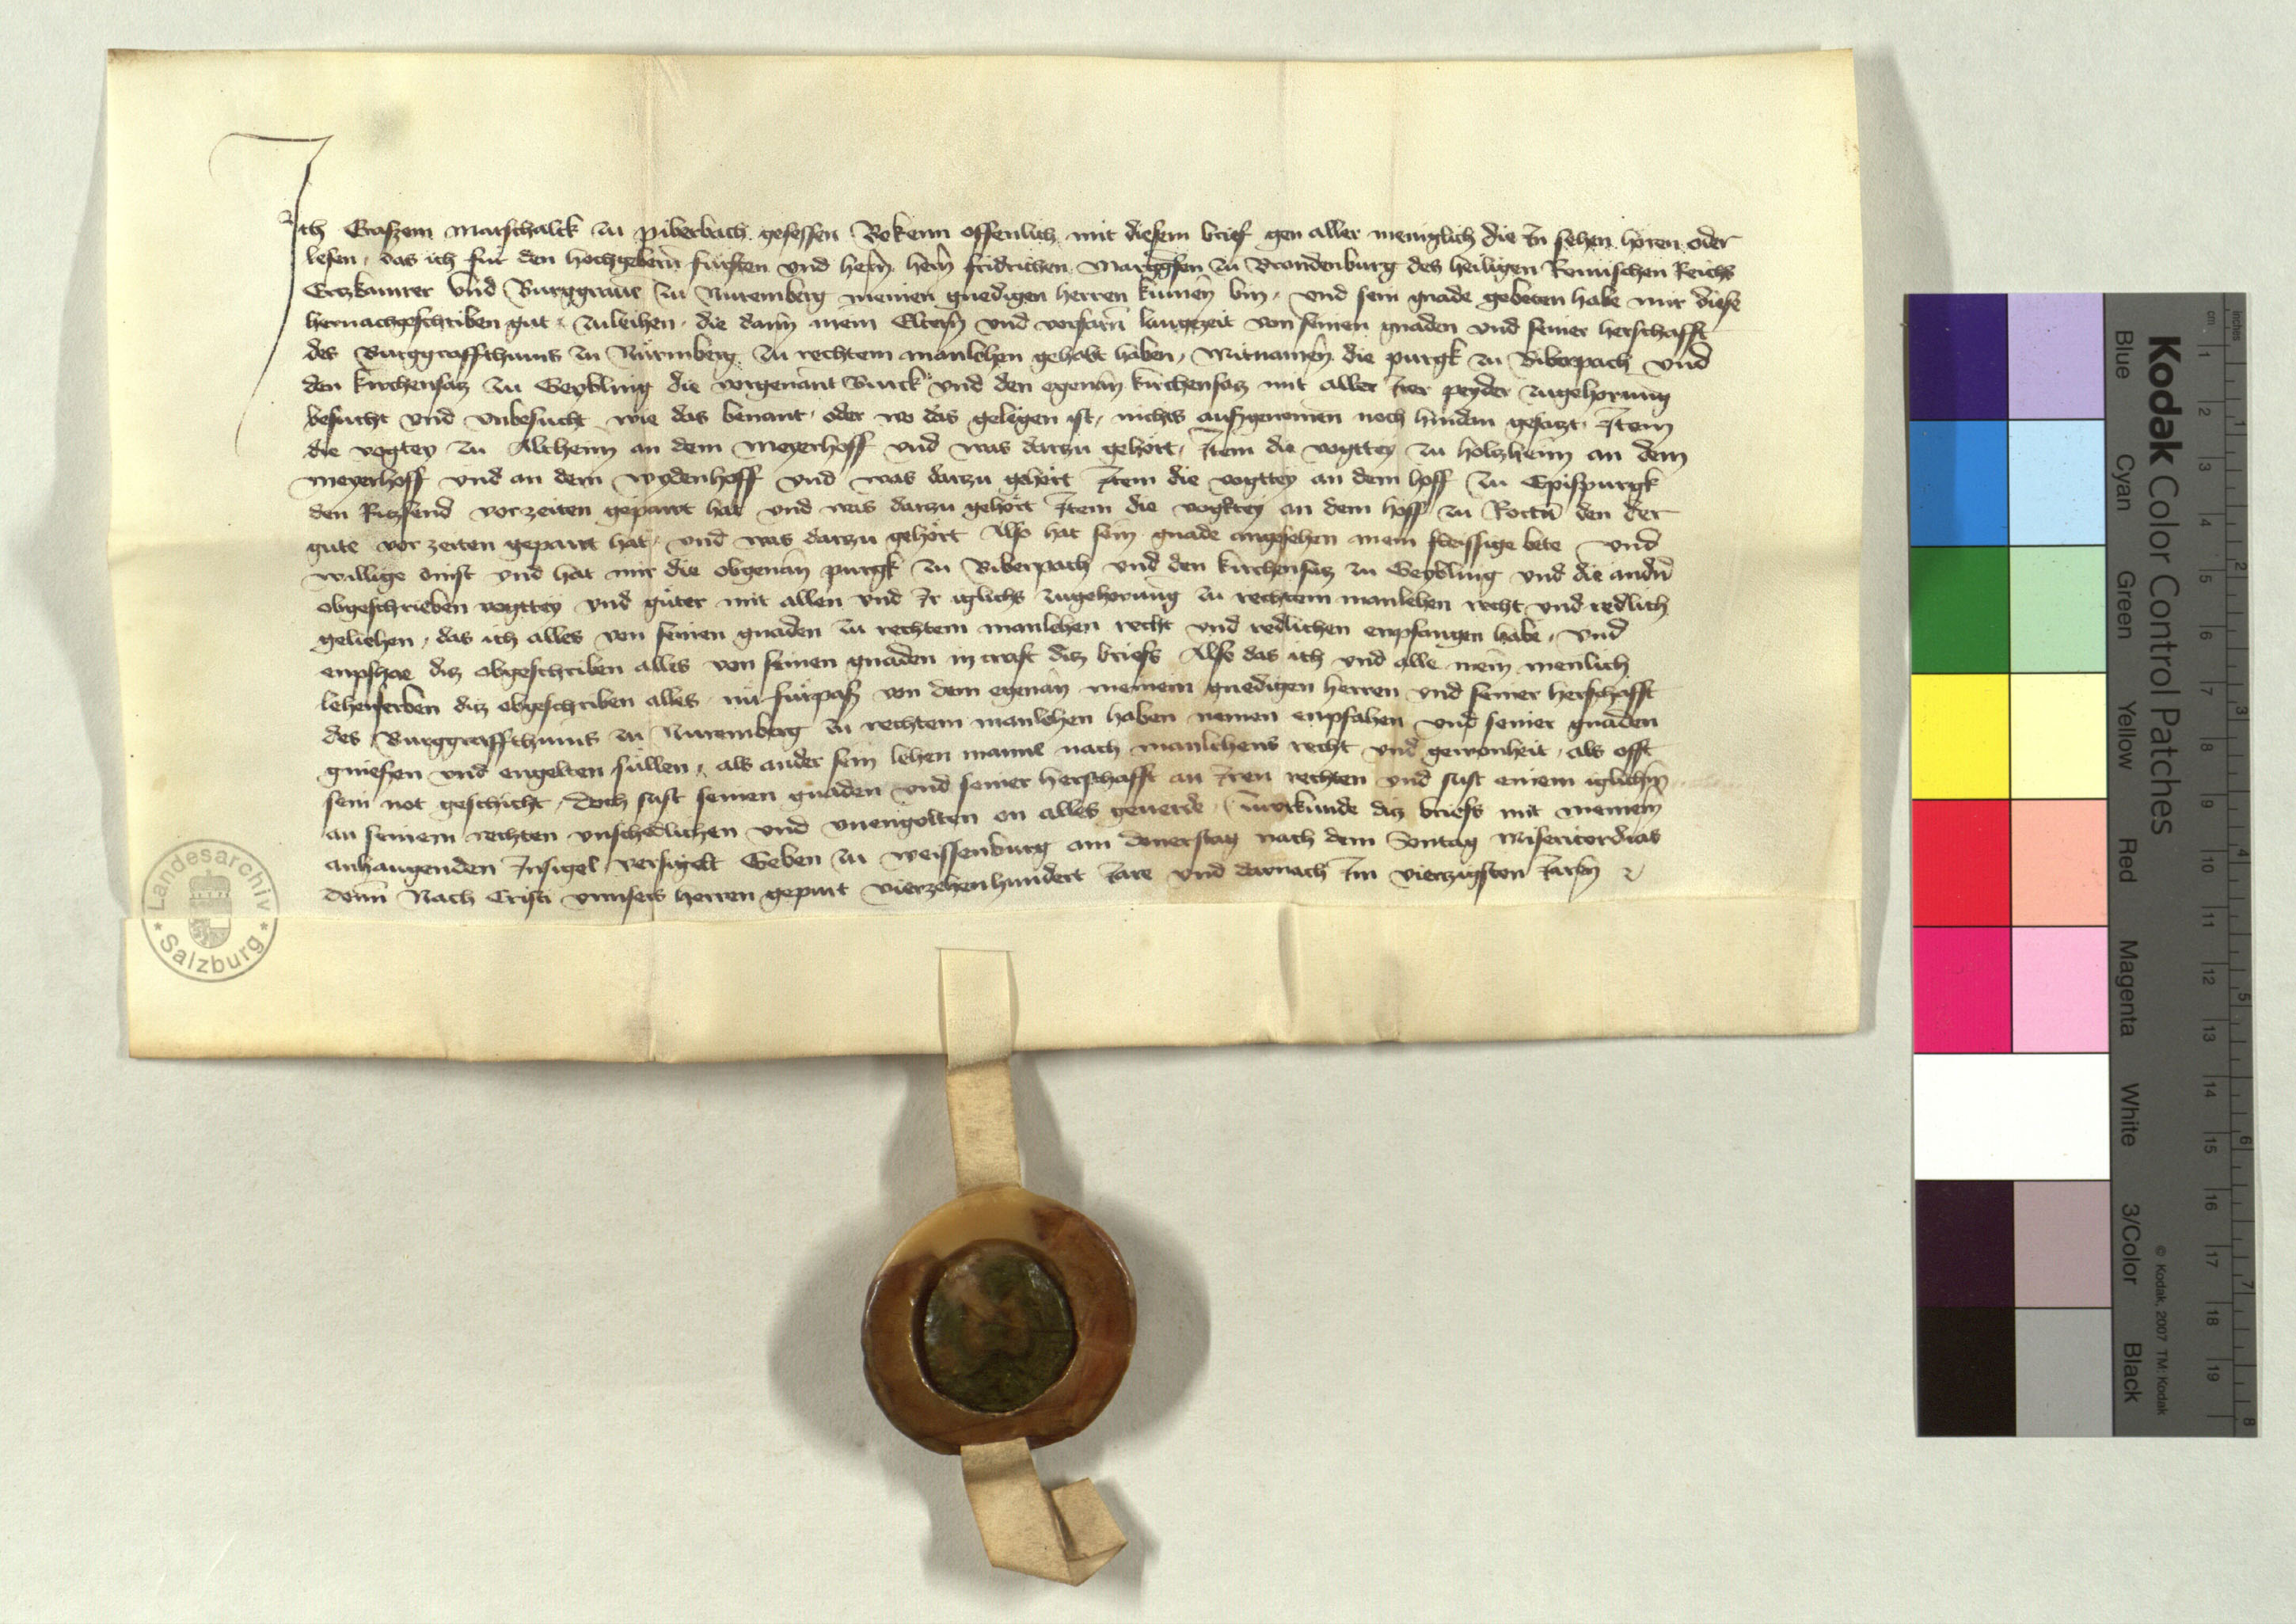 Ich Erasem Marschalck zu piberbach gesessen Bekenn offenlich mit disem brief gen aller meniglich die In sehen horen oder
lesen, das ich fur den hochgeborn fursten und hern hern fridrichen Marggfen zu Brandenburg des heiligen Romischen Reichs
Ertzkamrer Und Burggraue zu Nuremberg meinen gnedigen herren kumen bin, und sein gnade gebeten habe mir diese
hernachgeschriben gut zuleihen, die dann mein Eltern und vorfarn langezeit von seinen gnaden und seiner herschafft
des Burggraffthums zu Nurmberg zu rechtem manlehen gehabt haben, Mitnamen die purgk zu Biberpach und
den kirchensatz zu Geybling die vorgenant Burck und den egenan kirchensatz mit aller irer peyder zugehorung
besucht und unbesucht wie das benant, oder wo das gelegen ist, nichts aufzgenomen noch hindan gesatzt, Item
die vogtey zu Altheim an dem Meyerhoff und was darzu gehort, Item die vogttey zu holzheim an dem
meyerhoff und an dem wydenhoff und was darzu gehort Item die vogttey an dem hoff zu Epispurgk
den vorzeiten gepawt hat und was darzu gehort Item die vogktey an dem hoff zu den der
gute vor zeiten gepawt hat, und was darzu gehort Also hat sein gnade angesehen mein fleissige bete und
willige dinst und hat mir die obgenan purgk zu Biberpach und den kirchensatz zu Geybling und die andn
obgeschrieben vogttey und guter mit allen und Ir iglichs zugehorung zu rechtem manlehen recht und redlich
gelihen, das ich alles von seinen gnaden zu rechtem manlehen recht und redlichen enpfangen habe, Und
enpfhae ditz obgeschriben alles von seinen gnaden in craft ditz briefs Also das ich und alle mein menlich
lehenserben ditz obgeschriben alles nu furpas von dem egenan meinem gnedigen herren und seiner herschafft
des Burggraffthums zu Nuremberg zu rechtem manlehen haben nemen enpfahen und seiner gnaden
geniesen und engelten sullen, als ander sein lehen manne nach manlehens recht und gewonheit, als offt
sein not geschicht, doch sust seinen gnaden und seiner herschafft an Iren rechten und sust einem iglichen
an seinem rechten unschedlichen und unengolten on alles geuerde, urkunde ditz briefs mit meinem
anhangenden Insigel versigelt Geben zu weissenburg am donerstag nach dem Sontag Misericordias
domi Nach Cristi unnsers herren gepurt vierzehenhundert Iare und darnach Im vierzigsten Iaren
Landesarchiv
Salzburg
Kodak Color Control Patches
Blue Cyan Green Yellow Red Magenta White 3/Color Black
© Kodak, 2007 TM: Kodak
cm 1 2 3 4 5 6 7 8 9 10 11 12 13 14 15 16 17 18 19
inches 1 2 3 4 5 6 7 8